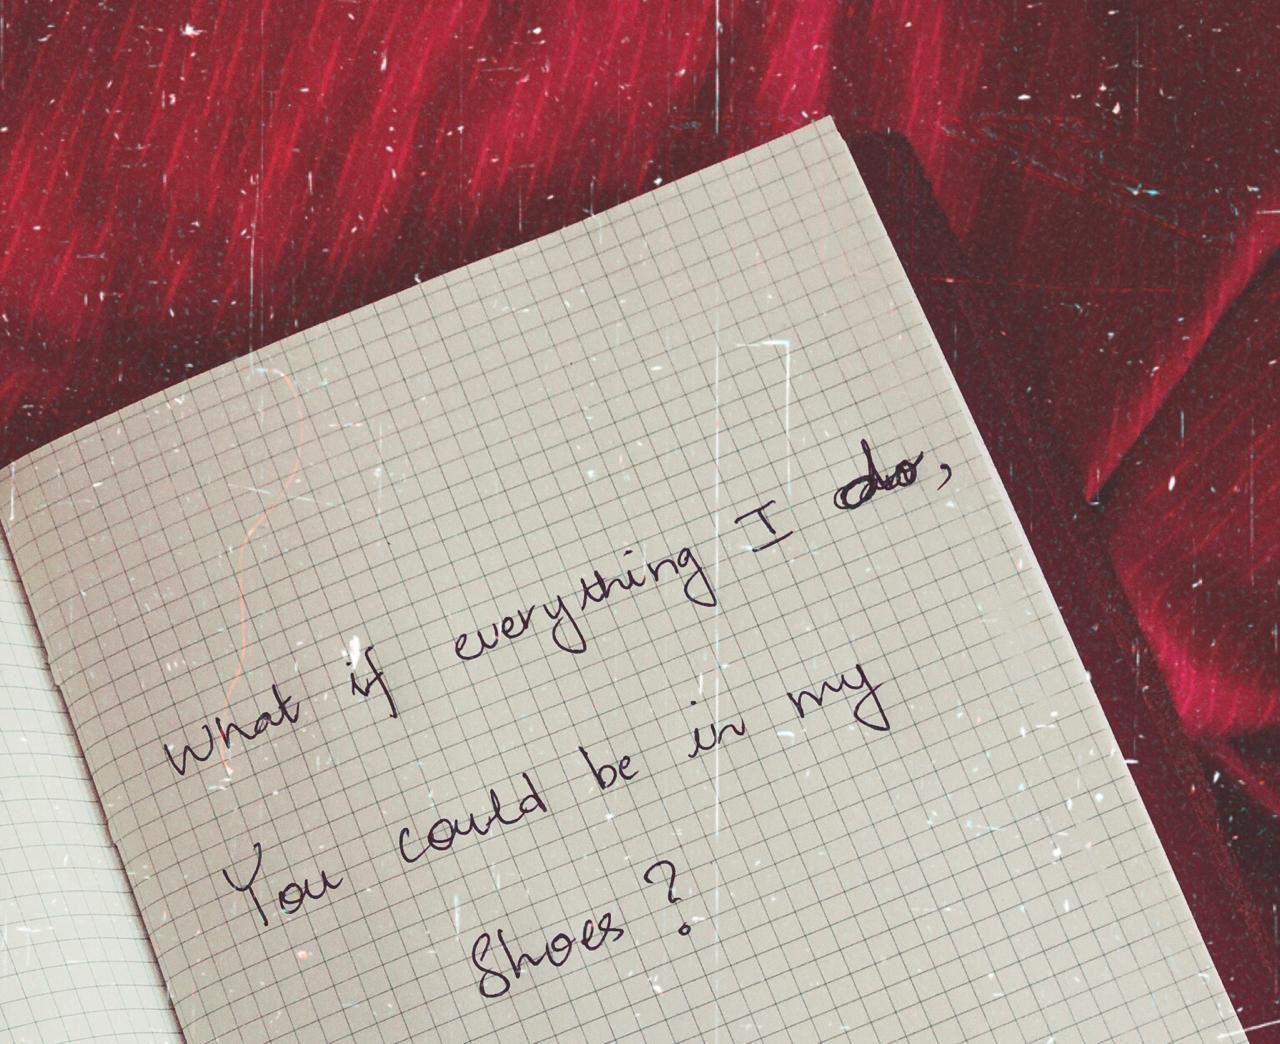 What if everything I do,
You could be in my
Shoes ?